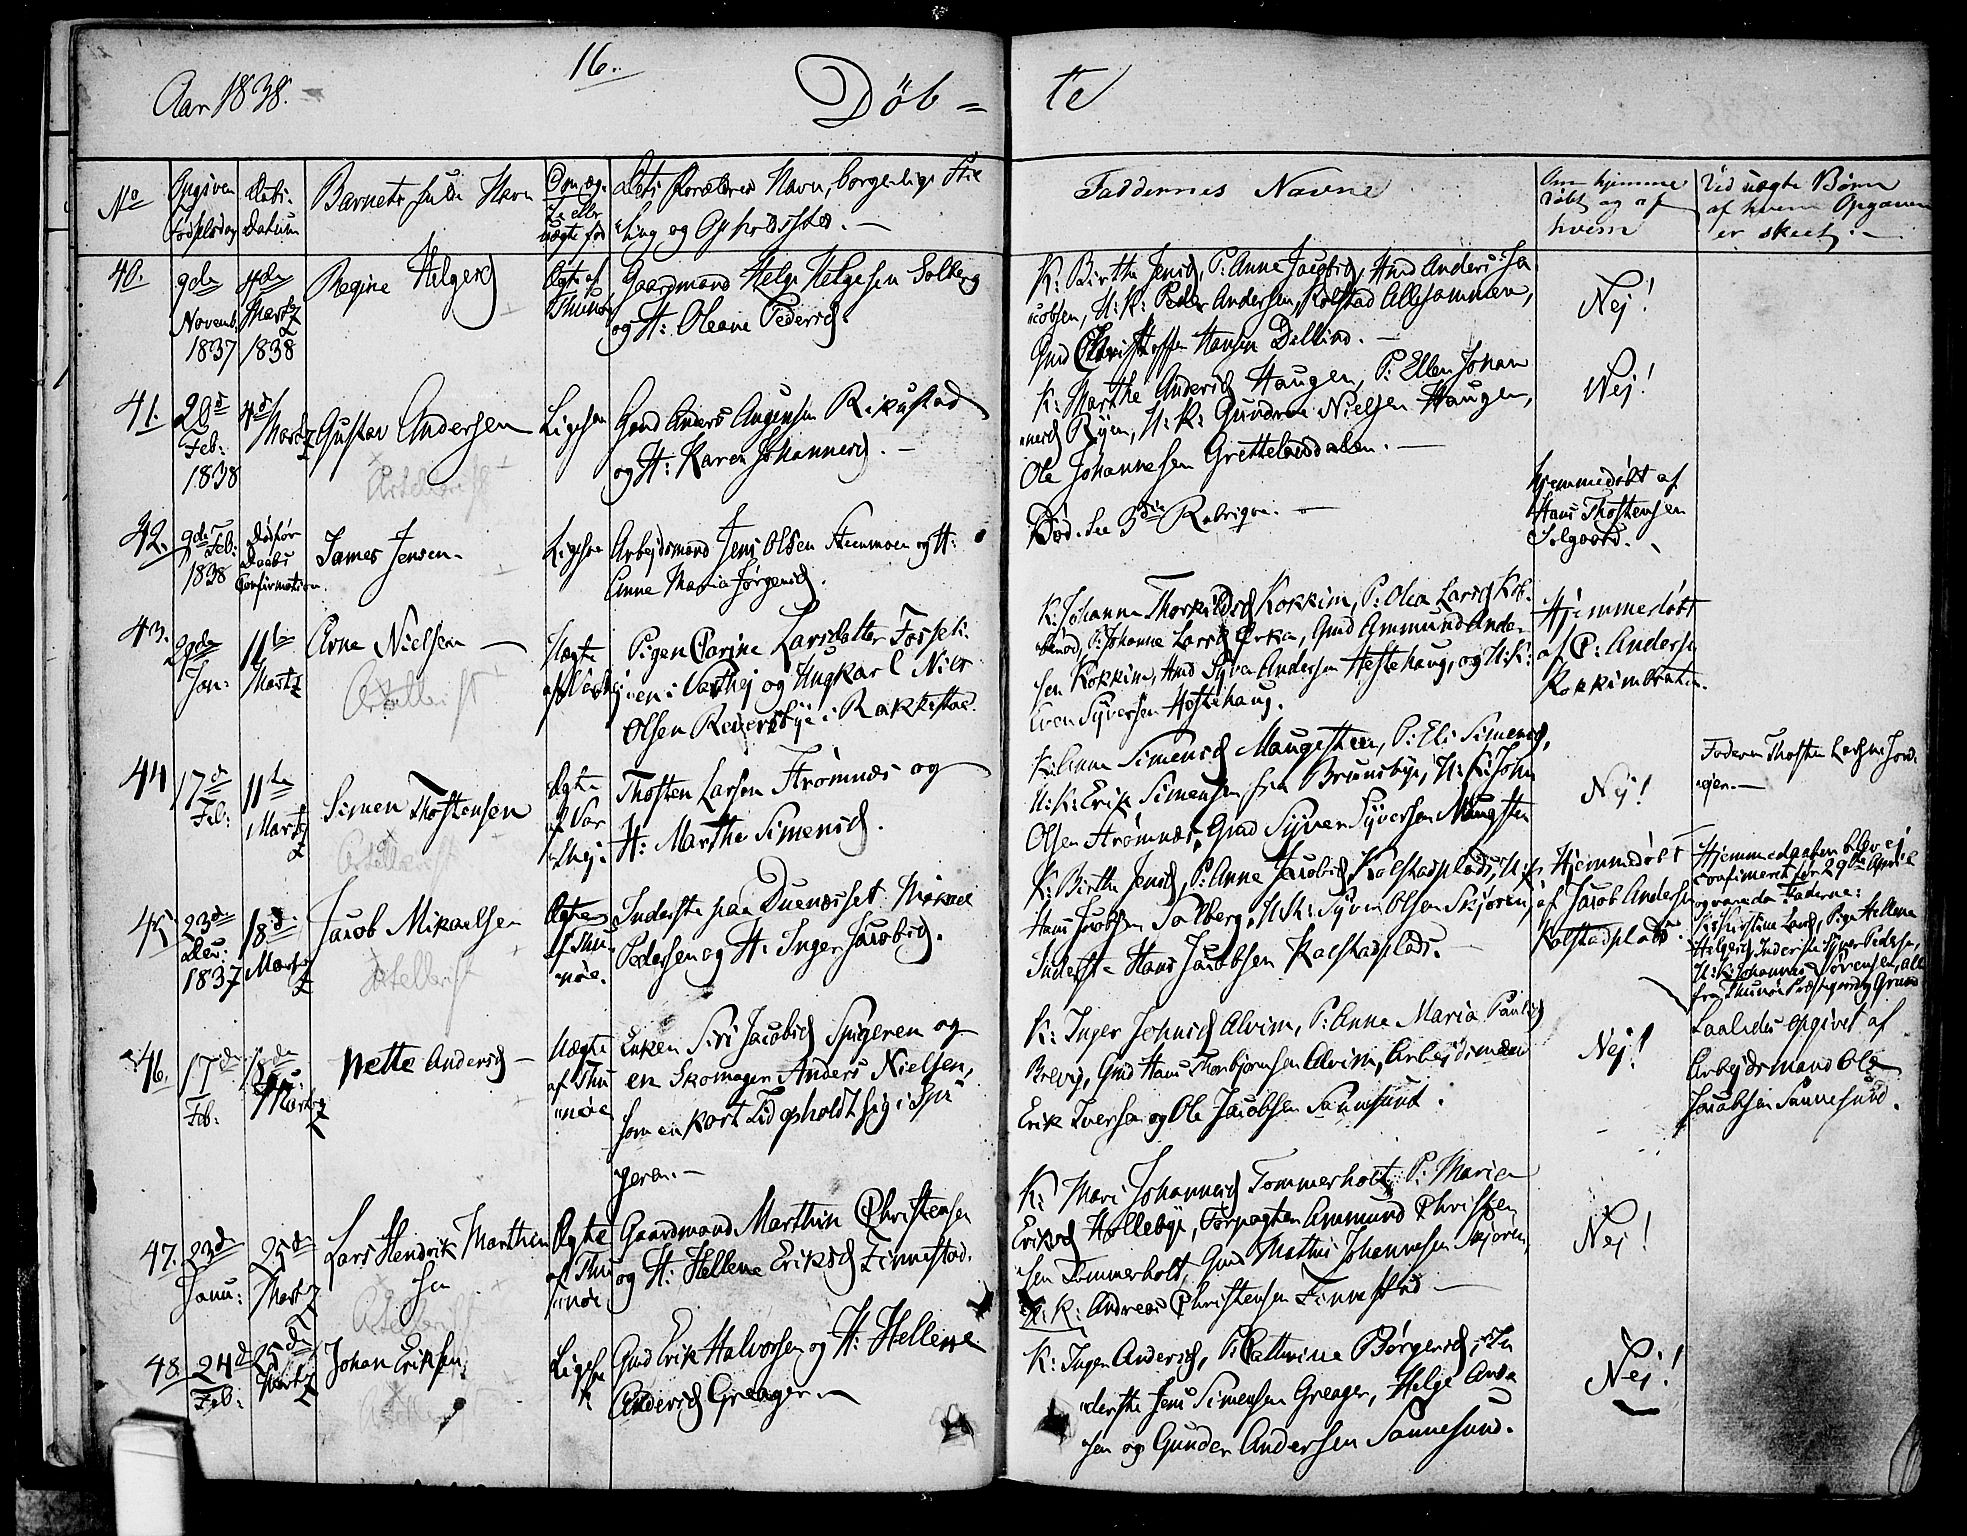 16.
Aar 1838.
Døb=
te
No
Opgiven Fødselsdag
Daabs Datum
Barnets fulde Navn
Om ægte eller uægte fød
Dets Forældres Navn, borgerlige Stil
ling og Opholdssted. —
Faddernes Navne
Om hjemme døbt og af hvem
Ved uægte Børn af hvem Opgaven er skeet. —
40.
9de Novemb. 1837
4de Martz 1838
Regine Helgesd
Ægte af Thunøe
Gaardmand Helge Helgesen Solberg
og H: Oleane Pedersd.
K: Birthe Jensd, P: Anne Jacobsd, Gmd Anders Ja
cobsen, U: K: Peder Andersen, Kolstad Allesammen,
Gmd Christoffer Hansen Dellind. —
Nej!
41.
20d Feb: 1838
4d Martz
Gustav Andersen
Ligesaa
Gmd Anders Augensen Rekustad
og H: Karen Johannesd. —
K: Marthe Andersd Haugen, P: Ellen Johan
nesd Ryen, U: K: Gunder Nielsen Haugen,
Ole Johannesen Grettelanddalen. —
Nej!
42.
9de Feb: 1838
Død før Daabs Confirmation
James Jensen.
Ligesaa
Arbejdsmand Jens Olsen Stenmoen og H:
Anne Maria Jørgensd.
Død. See 3die Rubriqve. —
hjemmedøbt af
Hans Thostensen
Solgaard.
43.
29de Jan:
11te Martz
Arne Nielsen —
Uægte af Vartejg
Pigen Carine Larsdatter Fosseli
en i Varthej og Ungkarl Niels
Olsen Reiersbye i Rakkestad.
K: Johanne Thorkildsd Kokkim, P: Olea Larsd
P: Johanne Larsd Gmd Ammund Ander
sen Kokkim, Gmd Syver Andersen Hestehaug, og U: K:
Even Syversen Hestehaug.
Hjemmedøbt
af P: Andersen
Kokkimbraten.
44
17d Feb:
11te Martz
Simen Thostensen
Ægte af Varthej:
Thosten Larsen Strømnæs og
H: Marthe Simensd.
K: Anne Simensd Maugesteen, P: Eli Simensd,
U: K: Erik Simensen fra Brunsbye, U: K: John
Olsen Strømnæs, Gmd Syver Syversen Maugsten
Nej!
Faderen Thosten Larsen
45.
23de Dec: 1837
18d Martz
Jacob Mikaelsen
Ægte af Thunøe.
Inderste paa Duenæsset Mikael
Pedersen og H: Inger Jacobsd.
K: Birthe Jensd, P: Anne Jacobsd Kolstadplads, U: K:
Hans Jacobsen Solberg, U: K: Syver Olsen Skjøren,
Inderste Hans Jacobsen Kolstadplads. —
Hjemmedøbt
af Jacob Andersen
Kolstadplads.
Hjemmedaaben blev ej
confirmeret før 29de April
og vare da Fadderne:
K: Kirstine Larsd, Pige Hellene
Helgesd, Inderste Syver Pedersen,
U: K: Johannes Sørensen, alle
fra Thunøe Præstegaards Grund
46.
17de Feb:
18de Martz
Nette Andersd —
Uægte af Thunøe
Enken Siri Jacobsd Spigeren og
en Skomager Anders Nielsen,
som en kort Tid opholdt sig i Spi
geren. —
K: Inger Johnsd Alvim, P: Anne Maria Paulsd
Brevig, Gmd Hans Thorbjornsen Alvim, Arbejdsmænd
Erik Iversen og Ole Jacobsen Sannesund.
Nej!
Saaledes opgivet af
Arbejdsmand Ole
Jacobsen Sannesund.
47.
23de Janu:
25de Martz
Lars Hendrik Marthin
sen
Ægte af Thunøe
Gaardmand Marthin Christensen
og H: Hellene Eriksd Finnestad.
K: Mari Johannesd Tommerholt, P: Maria
Eriksd Hollebye, Forpagter Ammund Christen
sen Tommerholt, Gmd Mathis Johannesen Skjøren,
U: K: Andreas Christensen Finnestad —
Nej!
48.
24d Feb:
25de Martz
Johan Eriksen
Ligesaa
Gmd Erik Halvorsen og H: Hellene
Andersd Greager. —
K: Inger Andersd, P: Cathrine Børgersd, In
derste Jens Simensen Greager, Helge Ande
sen og Gunder Andersen Sannesund.
Nej!